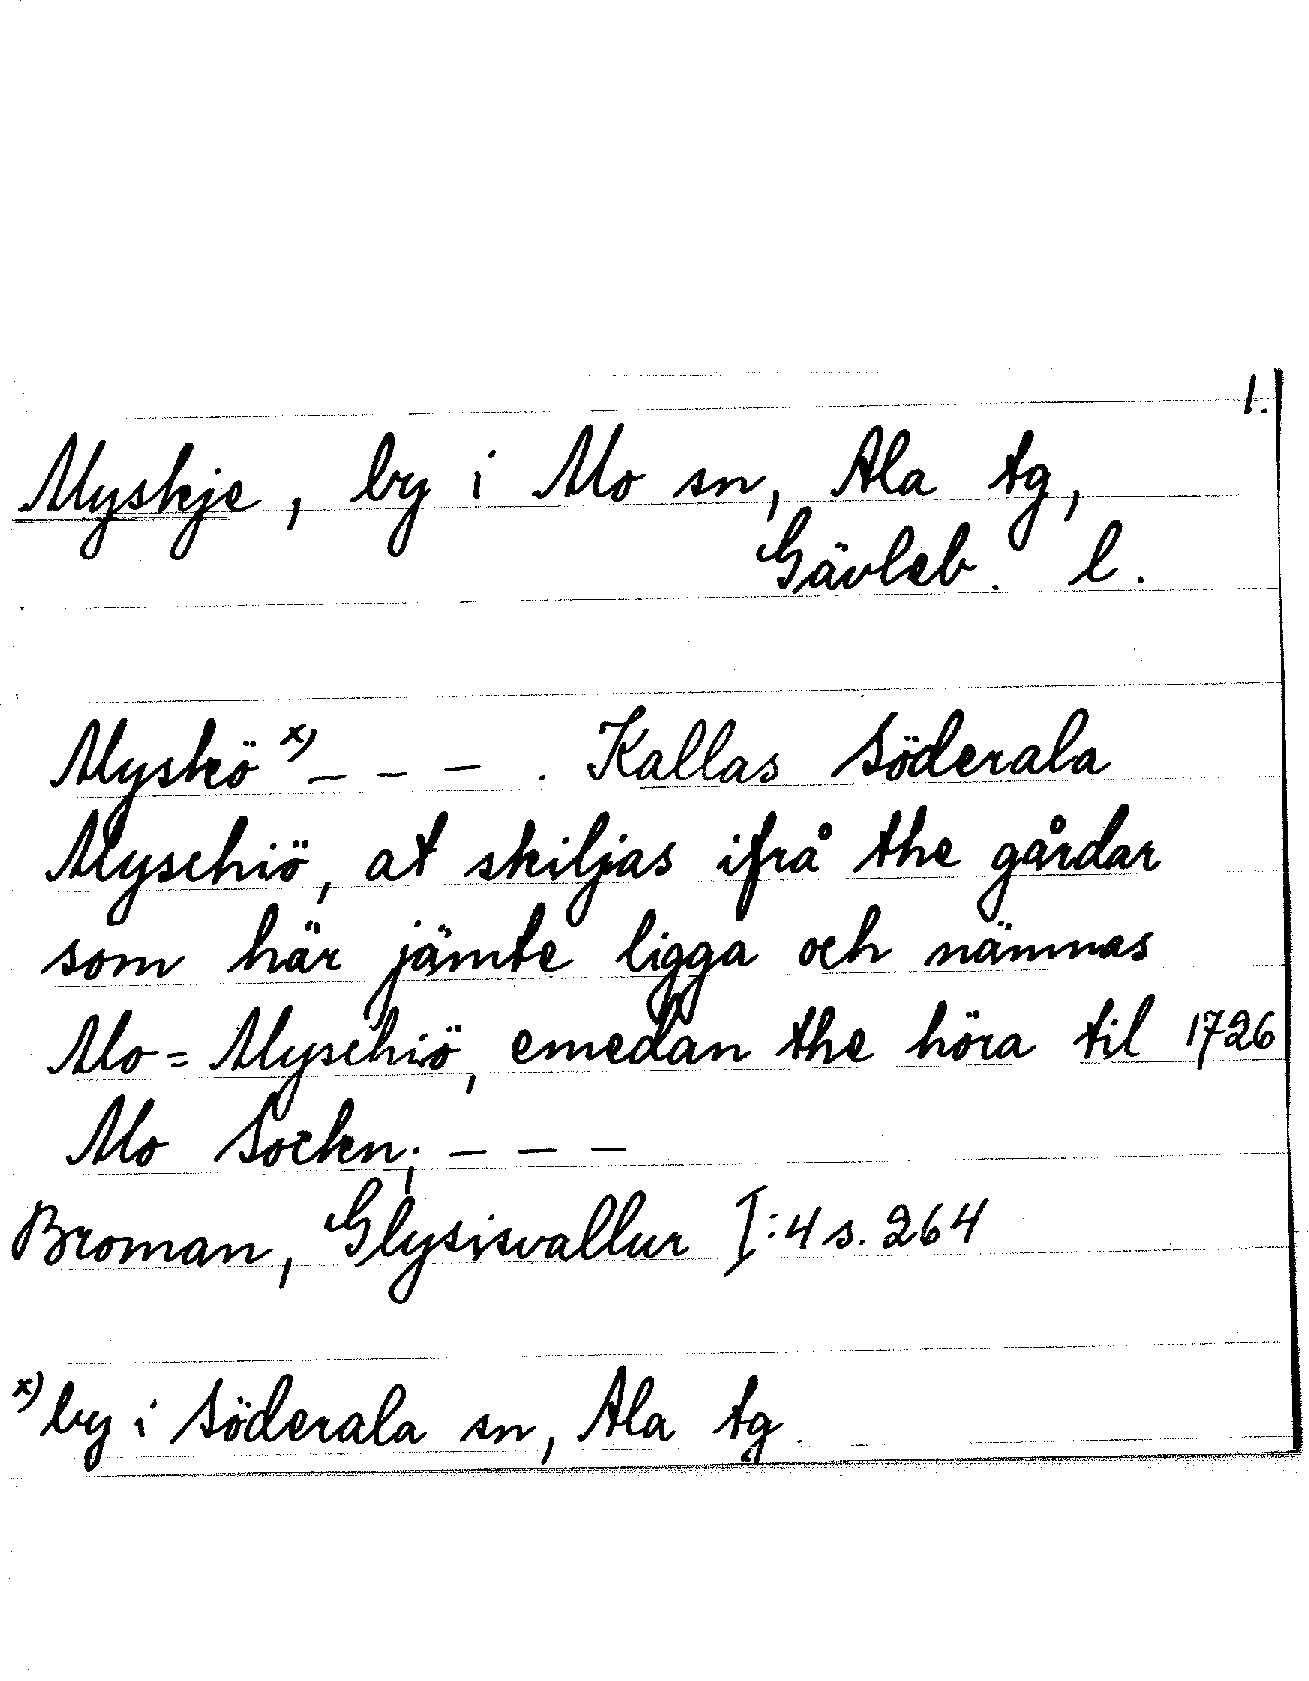 1.
Myskje, by i Mo sn, Ala tg,
Gävleb. l.
Myskö x) _ _ _ . Kallas Söderala
Myschiö, at skiljas ifrå the gårdar
som här jämte ligga och nämnas
Mo=Myschiö, emedan the höra til 1726
Mo Sockn; _ _ _
Broman, Glysisvallur I:4 s. 264
x) by i Söderala sn, Ala tg.